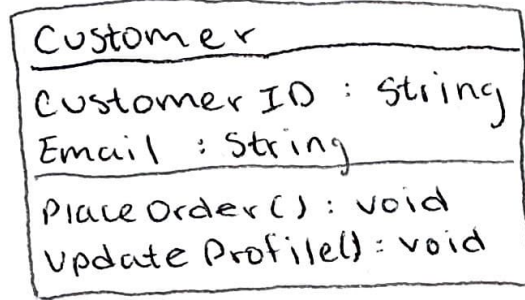 Customer
Customer ID : String
Email : String
Place Order() : void
Update Profile() : void